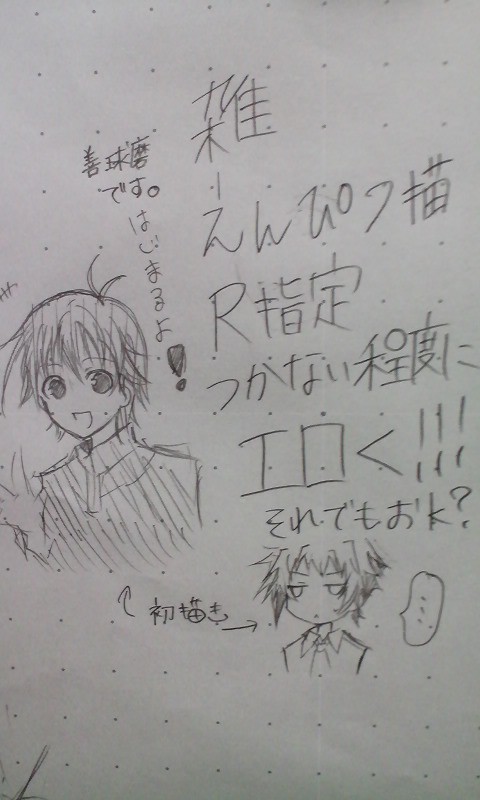 雑
えんぴつ描
R指定
つかない程度に
エロく!!!
それでもおk?
善球磨
です。
はじまるよ!
初描き